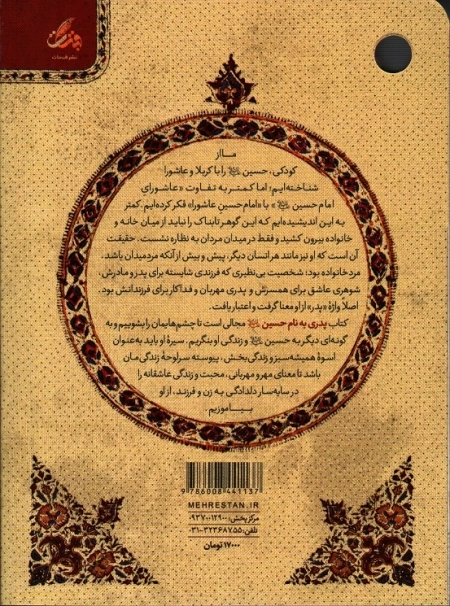 مهرستان
نشر مهرستان
ما از
کودکی، حسین ﷺ را با کربلا و عاشورا
شناخته‌ایم؛ اما کمتر به تفاوت «عاشورای
امام حسین ﷺ» با «امام حسین عاشورا» فکر کرده‌ایم. کمتر
به این اندیشیده‌ایم که این گوهر تابناک را نباید از میان خانه و
خانواده بیرون کشید و فقط در میدان مردان به نظاره نشست. حقیقت
آن است که او نیز مانند هر انسان دیگر، پیش و بیش از آنکه مرد میدان باشد،
مرد خانواده بود؛ شخصیت بی‌نظیری که فرزندی شایسته برای پدر و مادرش،
شوهری عاشق برای همسرش و پدری مهربان و فداکار برای فرزندانش بود.
اصلاً واژهٔ «پدر» از او معنا گرفت و اعتبار یافت.
کتاب پدری به نام حسین ﷺ مجالی است تا چشم‌هایمان را بشوییم و به
گونه‌ای دیگر به حسین ﷺ و زندگی او بنگریم. سیرهٔ او باید به‌عنوان
اسوهٔ همیشه‌سبز و زندگی‌بخش، پیوسته سرلوحهٔ زندگی‌مان
باشد تا معنای مهر و مهربانی، محبت و زندگی عاشقانه را
در سایه‌سار دلدادگی به زن و فرزند، از او
بیاموزیم.
9 786008 441137
MEHRESTAN.IR
مرکز پخش: ۰۹۳۷۰۰۱۲۹۰۰
تلفن: ۳۲۳۶۸۷۵۵-۰۳۱
۱۷۰۰۰ تومان